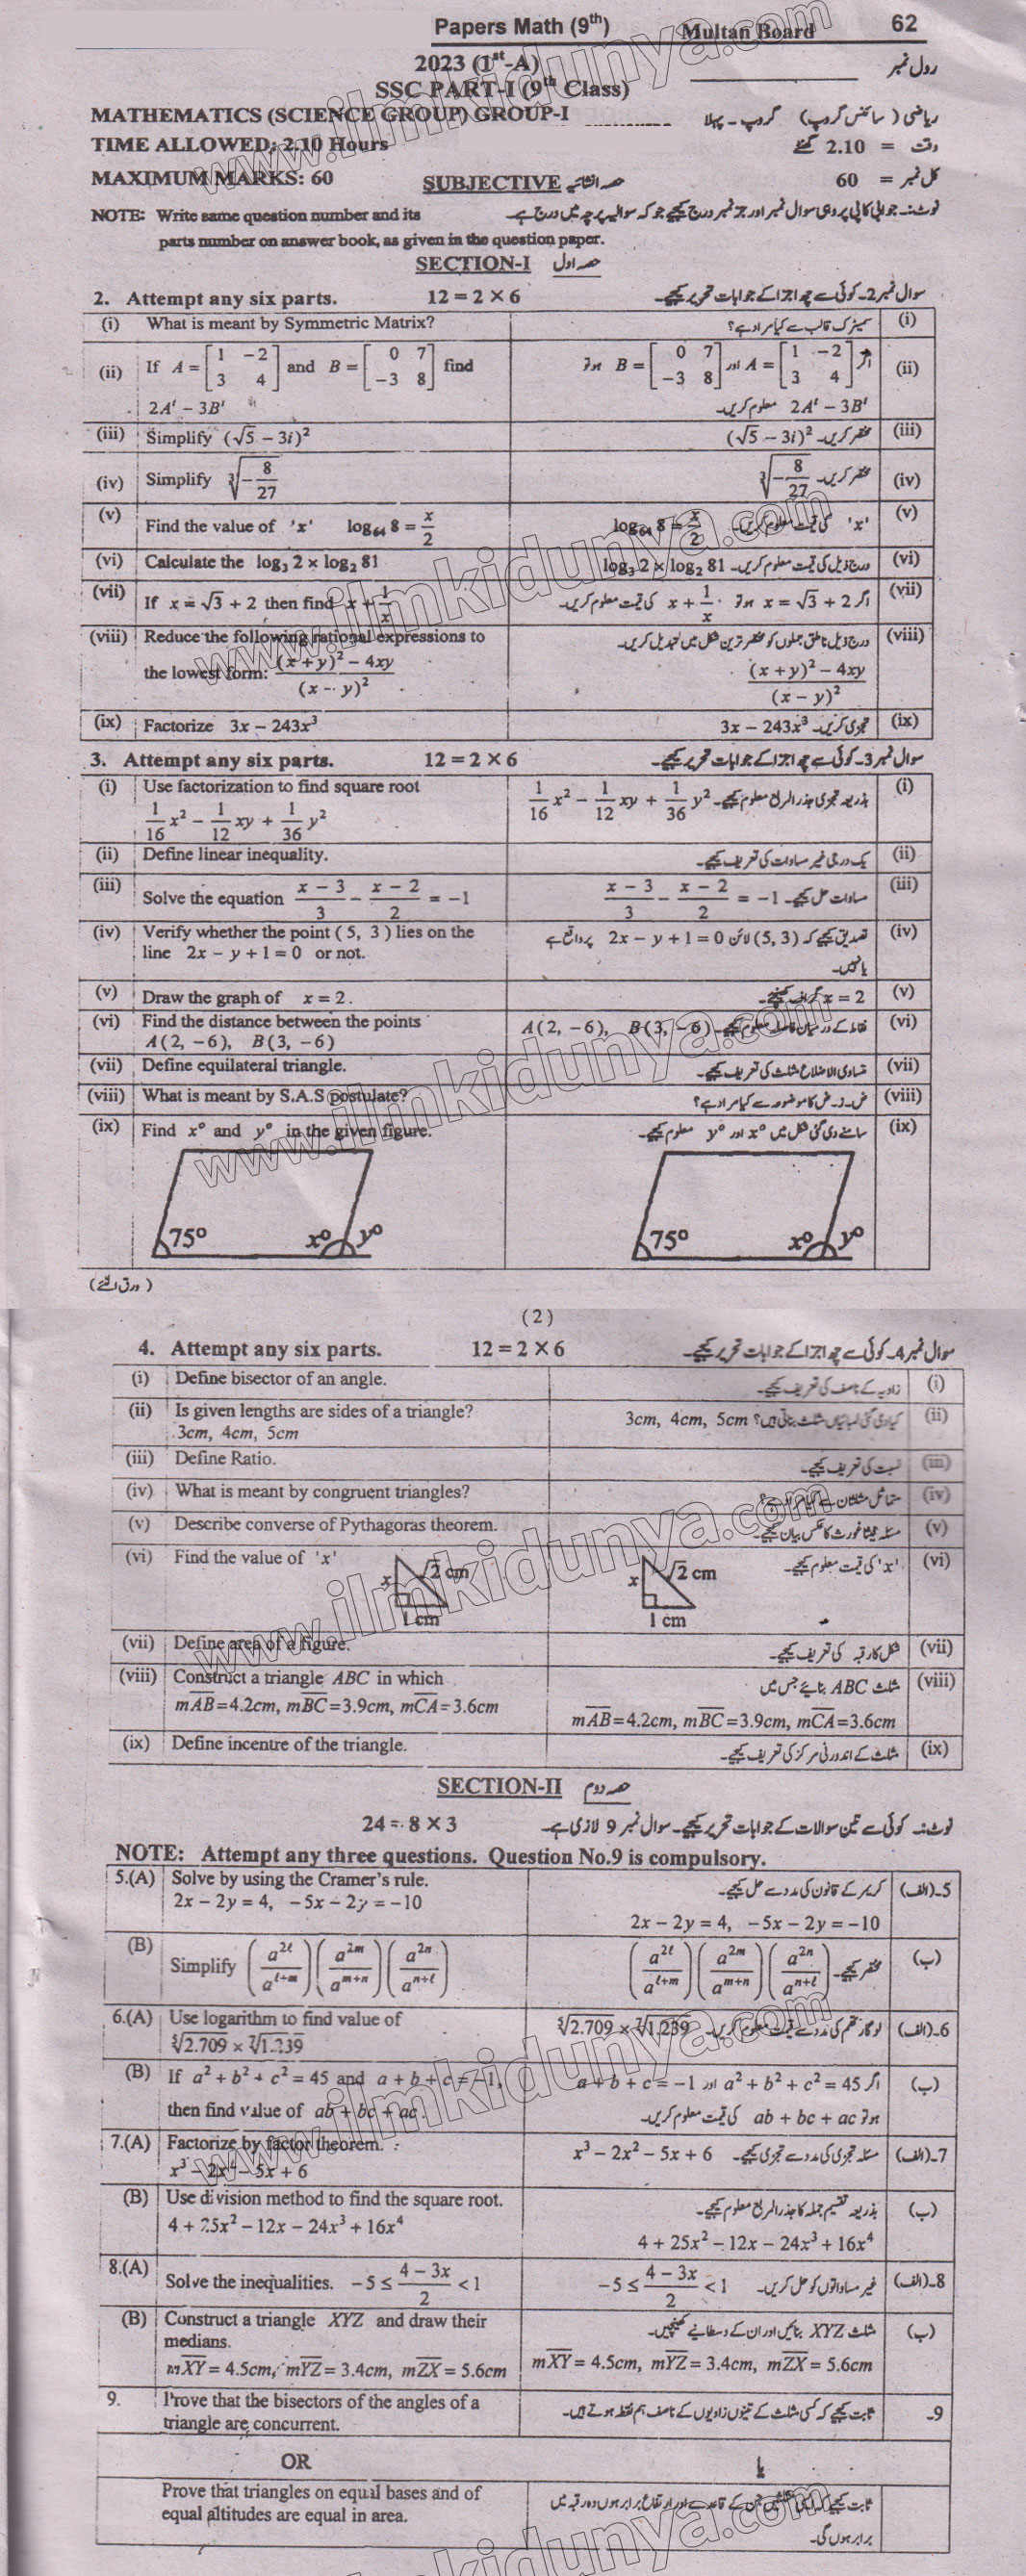 Papers Math (9th) Multan Board 62
2023 (1st-A) رول نمبر
SSC PART-I (9th Class)
MATHEMATICS (SCIENCE GROUP) GROUP-I ریاضی (سائنس گروپ) گروپ ۔ پہلا
TIME ALLOWED: 2.10 Hours وقت = 2.10 گھنٹے
MAXIMUM MARKS: 60 SUBJECTIVE حصہ انشائیہ کل نمبر = 60
NOTE: Write same question number and its نوٹ:۔ جوابی کاپی پر وہی سوال نمبر اور جز نمبر درج کیجیے جو کہ سوالیہ پرچہ میں درج ہے۔
parts number on answer book, as given in the question paper.
SECTION-I حصہ اول
2. Attempt any six parts. 12 = 2 × 6 سوال نمبر 2۔ کوئی سے چھ اجزا کے جوابات تحریر کیجیے۔
(i) What is meant by Symmetric Matrix? سمیٹرک قالب سے کیا مراد ہے؟ (i)
(ii) If A = [1 −2; 3 4] and B = [0 7; −3 8] find اگر A = [1 −2; 3 4] اور B = [0 7; −3 8] ہو تو (ii)
2Aᵗ − 3Bᵗ 2Aᵗ − 3Bᵗ معلوم کریں۔
(iii) Simplify (√5 − 3i)² مختصر کریں۔ (√5 − 3i)² (iii)
(iv) Simplify ∛(−8/27) مختصر کریں۔ ∛(−8/27) (iv)
(v) Find the value of 'x' log₆₄ 8 = x/2 'x' کی قیمت معلوم کریں۔ log₆₄ 8 = x/2 (v)
(vi) Calculate the log₃ 2 × log₂ 81 درج ذیل کی قیمت معلوم کریں۔ log₃ 2 × log₂ 81 (vi)
(vii) If x = √3 + 2 then find x + 1/x اگر x = √3 + 2 ہو تو x + 1/x کی قیمت معلوم کریں۔ (vii)
(viii) Reduce the following rational expressions to درج ذیل ناطق جملوں کو مختصر ترین شکل میں تبدیل کریں۔ (viii)
the lowest form: ((x + y)² − 4xy)/(x − y)² ((x + y)² − 4xy)/(x − y)²
(ix) Factorize 3x − 243x³ تجزی کریں۔ 3x − 243x³ (ix)
3. Attempt any six parts. 12 = 2 × 6 سوال نمبر 3۔ کوئی سے چھ اجزا کے جوابات تحریر کیجیے۔
(i) Use factorization to find square root بذریعہ تجزی جذر المربع معلوم کیجیے۔ 1/16 x² − 1/12 xy + 1/36 y² (i)
1/16 x² − 1/12 xy + 1/36 y²
(ii) Define linear inequality. یک درجی غیر مساوات کی تعریف کیجیے۔ (ii)
(iii) Solve the equation (x − 3)/3 − (x − 2)/2 = −1 مساوات حل کیجیے۔ (x − 3)/3 − (x − 2)/2 = −1 (iii)
(iv) Verify whether the point (5, 3) lies on the تصدیق کیجیے کہ (5, 3) لائن 2x − y + 1 = 0 پر واقع ہے (iv)
line 2x − y + 1 = 0 or not. یا نہیں۔
(v) Draw the graph of x = 2. x = 2 گراف کھینچئے۔ (v)
(vi) Find the distance between the points نقاط کے درمیان فاصلہ معلوم کیجیے۔ A(2, −6), B(3, −6) (vi)
A(2, −6), B(3, −6)
(vii) Define equilateral triangle. متساوی الاضلاع مثلث کی تعریف کیجیے۔ (vii)
(viii) What is meant by S.A.S postulate? ض۔ز۔ض کا موضوعہ سے کیا مراد ہے؟ (viii)
(ix) Find x° and y° in the given figure. سامنے دی گئی شکل میں x° اور y° معلوم کیجیے۔ (ix)
75° x° y° 75° x° y°
(ورق الٹیے)
(2)
4. Attempt any six parts. 12 = 2 × 6 سوال نمبر 4۔ کوئی سے چھ اجزا کے جوابات تحریر کیجیے۔
(i) Define bisector of an angle. زاویہ کے ناصف کی تعریف کیجیے۔ (i)
(ii) Is given lengths are sides of a triangle? کیا دی گئی لمبائیاں مثلث بناتی ہیں؟ 3cm, 4cm, 5cm (ii)
3cm, 4cm, 5cm
(iii) Define Ratio. نسبت کی تعریف کیجیے۔ (iii)
(iv) What is meant by congruent triangles? متماثل مثلثان سے کیا مراد ہے؟ (iv)
(v) Describe converse of Pythagoras theorem. مسئلہ فیثا غورث کا عکس بیان کیجیے۔ (v)
(vi) Find the value of 'x' 'x' کی قیمت معلوم کیجیے۔ (vi)
x √2 cm 1 cm x √2 cm 1 cm
(vii) Define area of a figure. شکل کا رقبہ کی تعریف کیجیے۔ (vii)
(viii) Construct a triangle ABC in which مثلث ABC بنایئے جس میں (viii)
mAB = 4.2cm, mBC = 3.9cm, mCA = 3.6cm mAB = 4.2cm, mBC = 3.9cm, mCA = 3.6cm
(ix) Define incentre of the triangle. مثلث کے اندرونی مرکز کی تعریف کیجیے۔ (ix)
SECTION-II حصہ دوم
24 = 8 × 3 نوٹ:۔ کوئی سے تین سوالات کے جوابات تحریر کیجیے۔ سوال نمبر 9 لازمی ہے۔
NOTE: Attempt any three questions. Question No.9 is compulsory.
5.(A) Solve by using the Cramer's rule. کریمر کے قانون کی مدد سے حل کیجیے۔ 5۔(الف)
2x − 2y = 4, −5x − 2y = −10 2x − 2y = 4, −5x − 2y = −10
(B) Simplify (a^2ℓ/a^ℓ+m)(a^2m/a^m+n)(a^2n/a^n+ℓ) مختصر کیجیے۔ (a^2ℓ/a^ℓ+m)(a^2m/a^m+n)(a^2n/a^n+ℓ) (ب)
6.(A) Use logarithm to find value of لوگارتھم کی مدد سے قیمت معلوم کریں۔ ⁵√2.709 × ⁷√1.239 6۔(الف)
⁵√2.709 × ⁷√1.239
(B) If a² + b² + c² = 45 and a + b + c = −1, اگر a² + b² + c² = 45 اور a + b + c = −1 (ب)
then find value of ab + bc + ac. ہو تو ab + bc + ac کی قیمت معلوم کریں۔
7.(A) Factorize by factor theorem. مسئلہ تجزی کی مدد سے تجزی کیجیے۔ x³ − 2x² − 5x + 6 7۔(الف)
x³ − 2x² − 5x + 6
(B) Use division method to find the square root. بذریعہ تقسیم جملہ کا جذر المربع معلوم کیجیے۔ (ب)
4 + 25x² − 12x − 24x³ + 16x⁴ 4 + 25x² − 12x − 24x³ + 16x⁴
8.(A) Solve the inequalities. −5 ≤ (4 − 3x)/2 < 1 غیر مساواتوں کو حل کریں۔ −5 ≤ (4 − 3x)/2 < 1 8۔(الف)
(B) Construct a triangle XYZ and draw their مثلث XYZ بنائیں اور ان کے وسطانیے کھینچیں۔ (ب)
medians.
mXY = 4.5cm, mYZ = 3.4cm, mZX = 5.6cm mXY = 4.5cm, mYZ = 3.4cm, mZX = 5.6cm
9. Prove that the bisectors of the angles of a ثابت کیجیے کہ کسی مثلث کے تینوں زاویوں کے ناصف ہم نقطہ ہوتے ہیں۔ 9۔
triangle are concurrent.
OR یا
Prove that triangles on equal bases and of ثابت کیجیے کہ ایسی مثلثیں جن کے قاعدے اور ارتفاع برابر ہوں وہ رقبہ میں
equal altitudes are equal in area. برابر ہوں گی۔
www.ilmkidunya.com
www.ilmkidunya.com
www.ilmkidunya.com
www.ilmkidunya.com
www.ilmkidunya.com